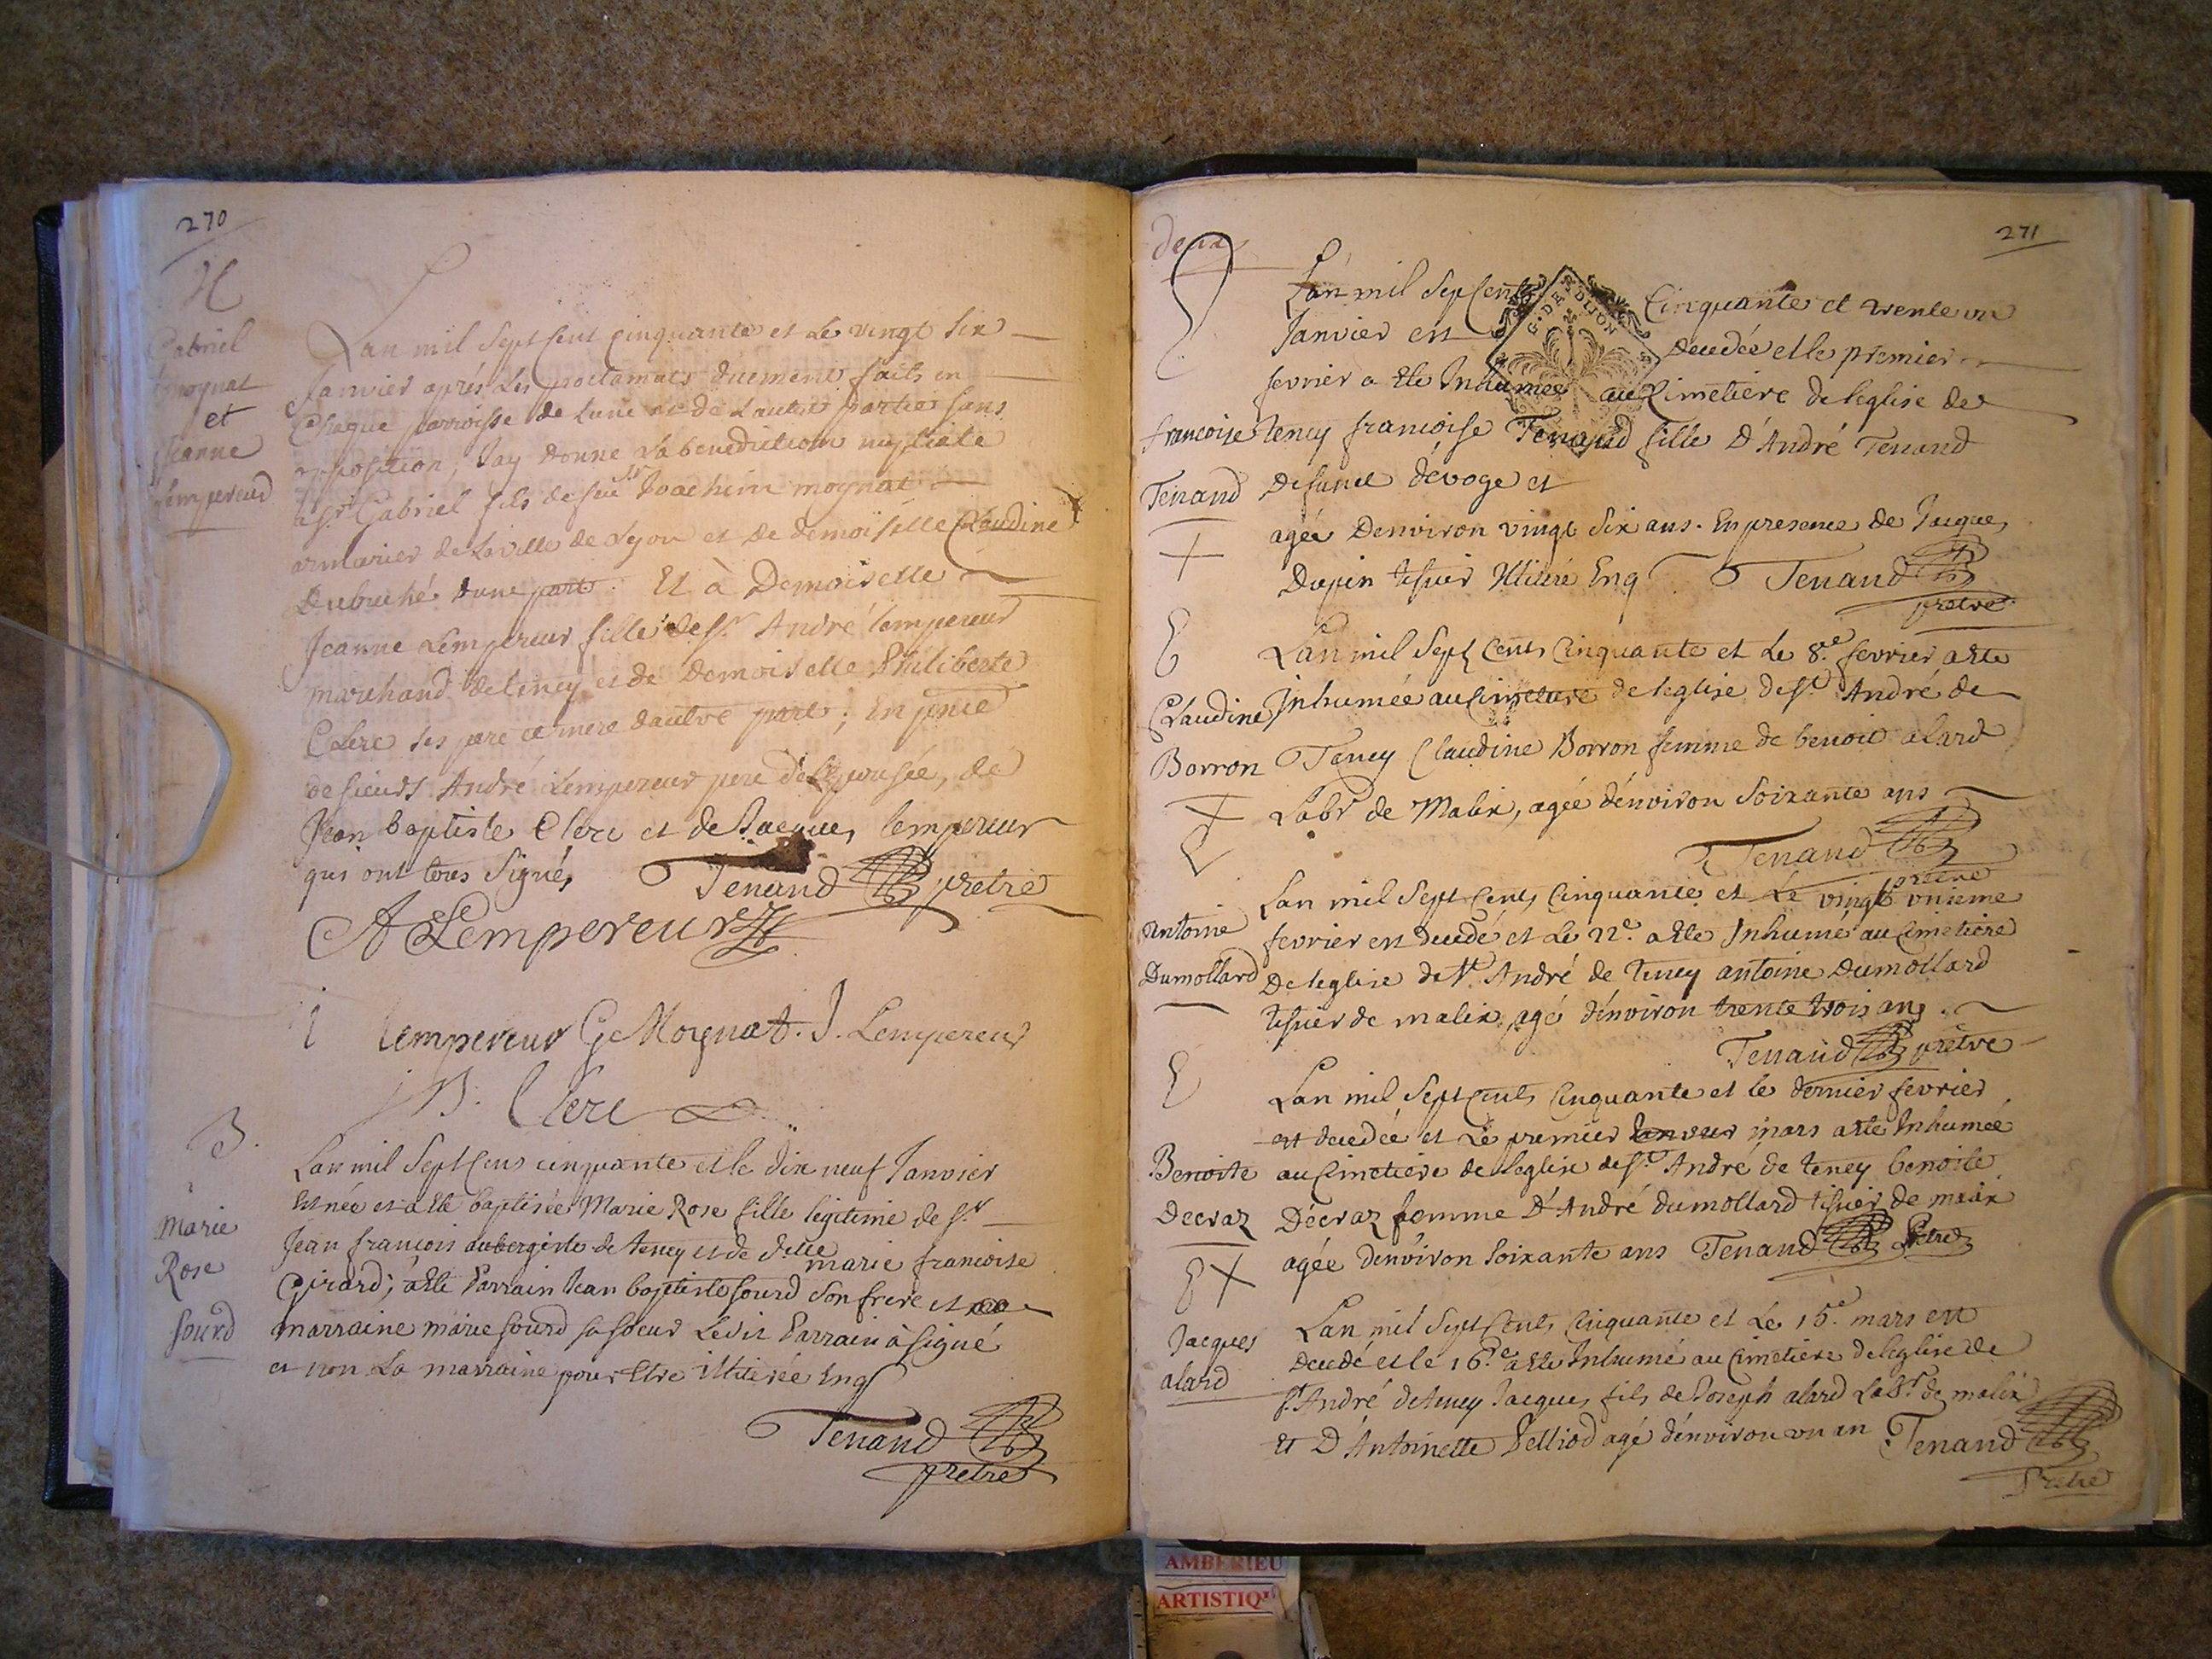 270
Gabriel
moynat
et
Jeanne
Lempereur
Lan mil Sept Cent Cinquante et Le vingt Six
Janvier aprés Les proclamats düement faits en
Chaque parroisse de Lune et de Lautre partie sans
opposition, Jay donné La benediction nuptiale
a Sr Gabriel fils de feu Sr Joachim moynat
armurier de La ville de Lyon et de demoiselle Claudine
Dubuché dune part. Et à Demoiselle
Jeanne Lempereur fille de Sr. André Lempereur
marchand de teney et de Demoiselle Philiberte
Clerc ses pere et mere dautre part; En pnce
de sieurs André Lempereur pere de Lepousée, de
Jean baptiste Clerc et de Jacques Lempereur
qui ont tous Signé, Tenand pretre
A Lempereur
lempereur G. Moynat. J. Lempereur
B. Clerc
B.
Marie
Rose
sourd
Lan mil Sept Cens cinquante et le dix neuf Janvier
Est née et a Eté baptisée Marie Rose fille légitime de Sr
Jean francois aubergiste de teney et de delle marie francoise
Girard; a Eté Parrain Jean baptiste sourd son frere et
marraine marie sourd sa soeur Ledit Parrain à signé
et non La marraine pour Etre illiterée Enq
Tenand
pretre
deux
271
G. DE DIJON
Lan mil Sept Cents Cinquante et trente un
Janvier est decedée et le premier
fevrier a Eté Inhumée au Cimetiere de leglise de
francoise
Tenand
teney francoise Tenand fille D'André Tenand
Defunct dévoge et
agée Denviron vingt Six ans. En presence de Jacques
Dupin tisser Illiteré Enq Tenand
pretre
E
Claudine
Borron
Lan mil Sept Cents Cinquante et Le 8.e fevrier a Ete
Inhumée au Cimetiere de leglise de St André de
Teney Claudine Borron femme de benoit alard
Labr de Malix, agée dénviron Soixante ans
Tenand
pretre
Antoine
Dumollard
Lan mil Sept Cents Cinquante et Le vingt unieme
fevrier est decedé et Le 22e. a Ete Inhumé au Cimetiere
De leglise de St. André de teney antoine Dumollard
tisier de malix, agé dénviron trente trois ans.
Tenand pretre
E
Benoite
Decraz
Lan mil Sept Cents Cinquante et le dernier fevrier
est decedée et Le premier mars a Ete Inhumée
au Cimetiere de leglise de St André de teney benoite
Décraz femme D'André dumollard tisier de malix
agée denviron soixante ans Tenand Pretre
E
Jacques
alard
Lan mil Sept Cents Cinquante et Le 15.e mars est
decedé et le 16.e a Ete Inhumé au Cimetiere de leglise de
St. André de teney Jacques fils de Joseph alard Labr. de malix
et D'Antoinette Pelliod agé dénviron un an Tenand
Pretre
AMBERIEU
ARTISTIQU